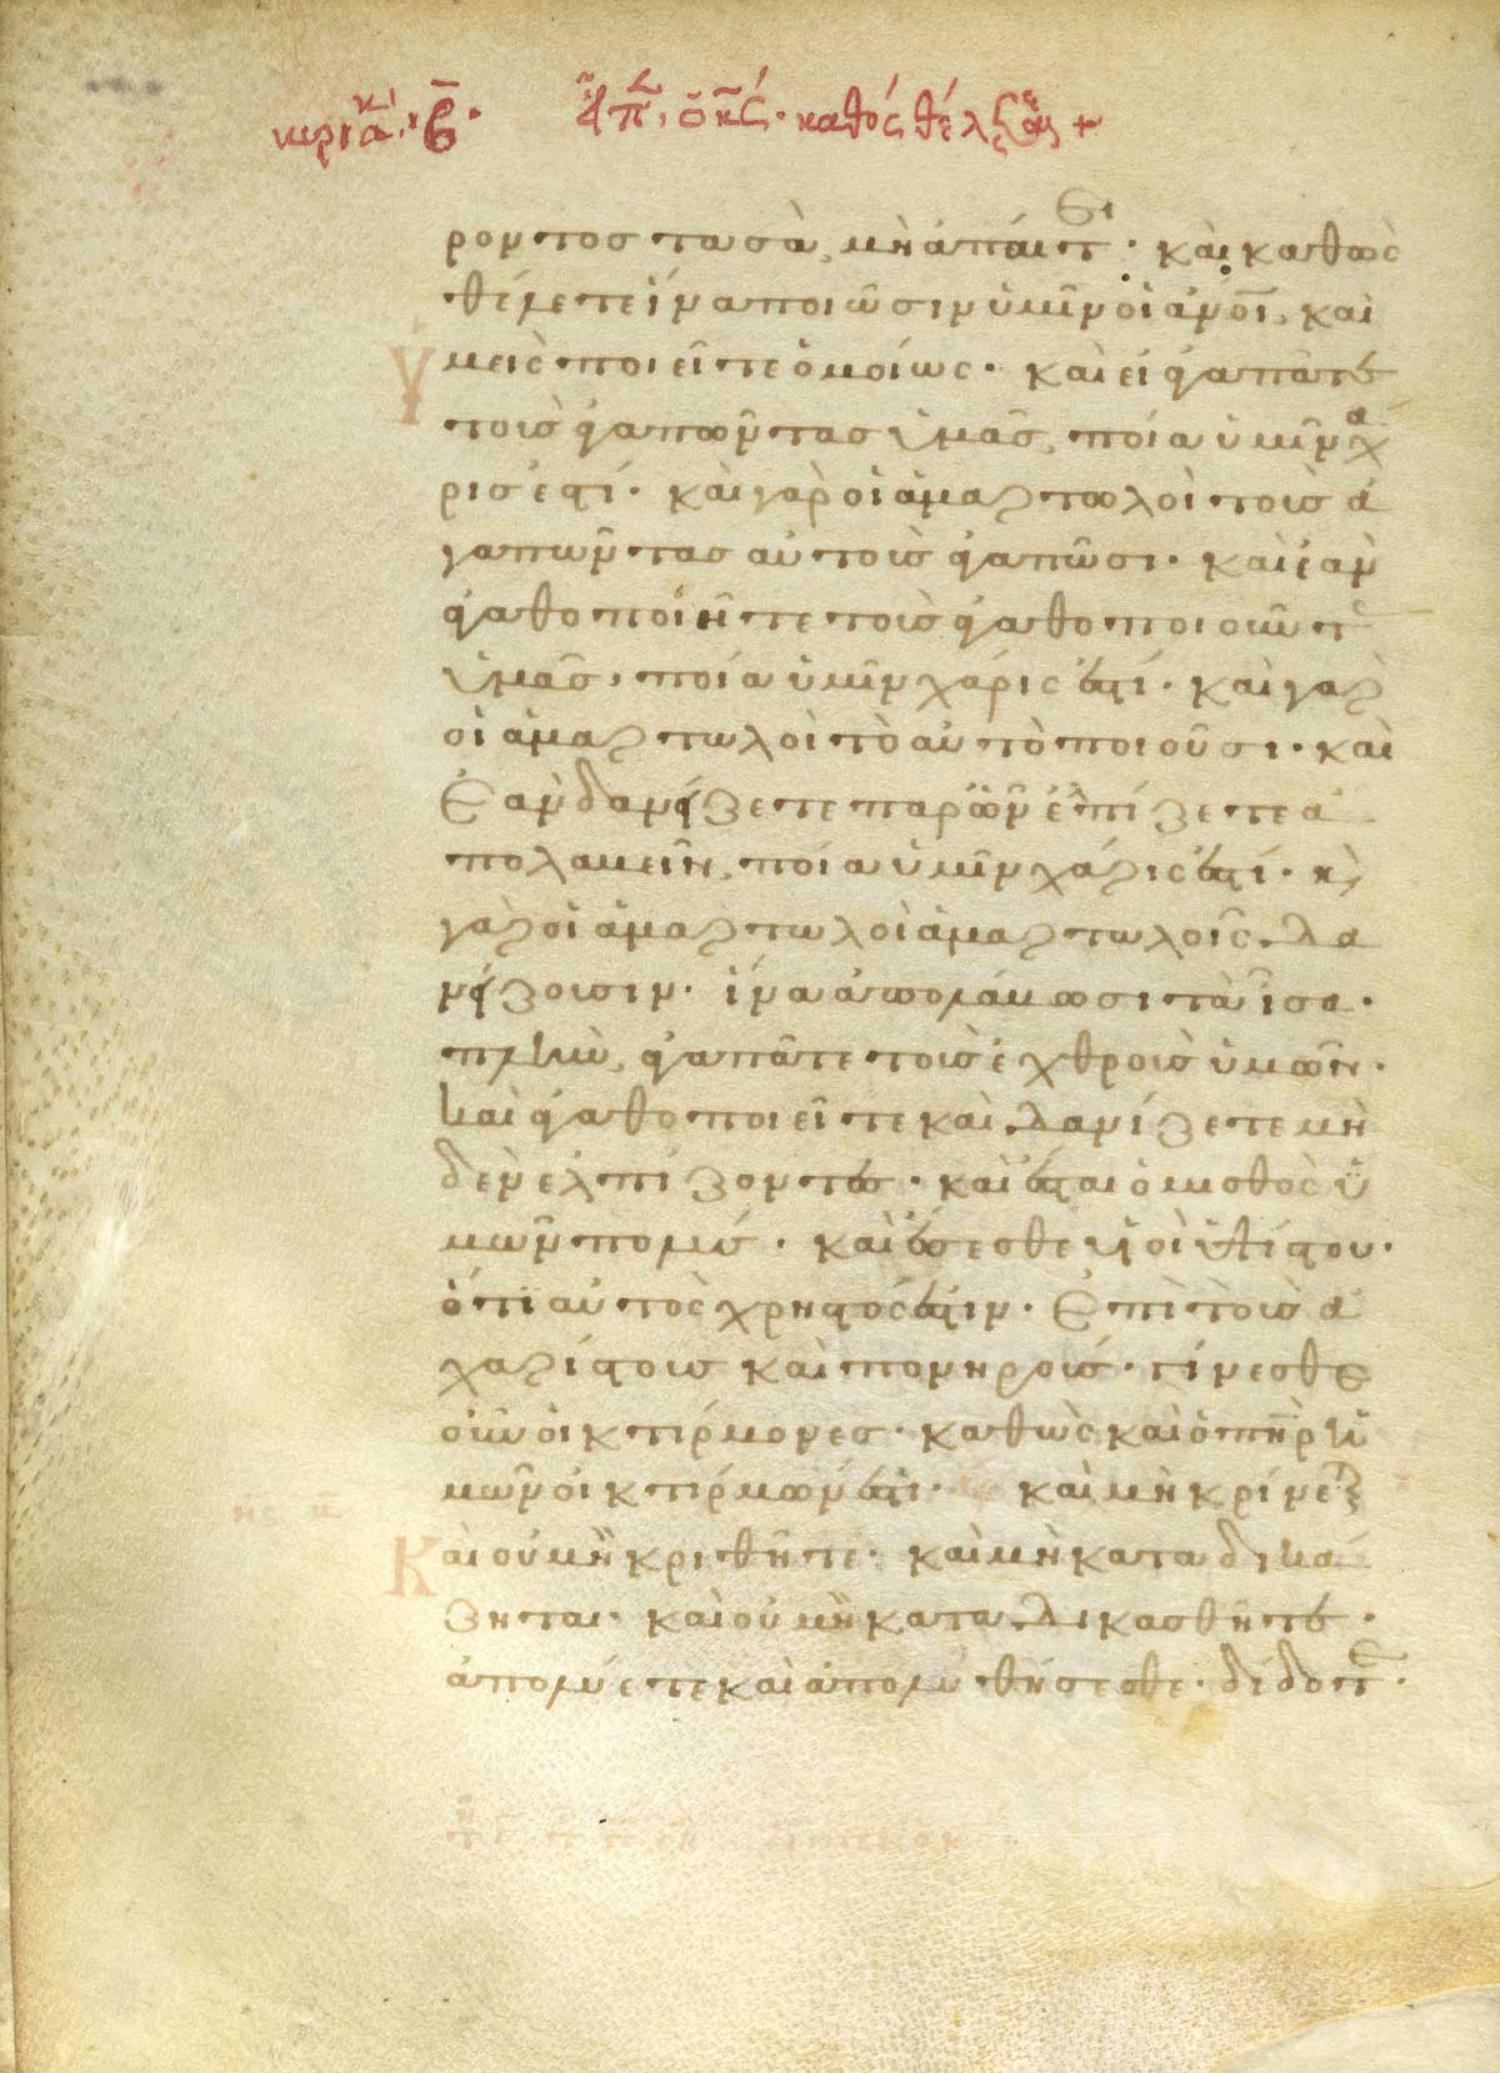 κυριακῇ β̅ · εἶπεν ὁ κς · καθὸς θέλεται +
ροντος τα σὰ, μὴ ἀπαίτει · καὶ καθὼς
θέλετε ἵνα ποιῶσιν ὑμῖν οἱ ἀνοι, καὶ
Υμεῖς ποιεῖτε ὁμοίως · καὶ εἰ ἀγαπᾶτε
τοὺς ἀγαπῶντας ὑμᾶς, ποία ὑμῖν χά
ρις ἐστί · καὶ γὰρ οἱ ἁμαρτωλοὶ τοὺς ἀ
γαπῶντας αὐτοὺς ἀγαπῶσι · καὶ ἐὰν
ἀγαθοποιῆτε τοὺς ἀγαθοποιοῦντας
ὑμᾶς, ποία ὑμῖν χάρις ἐστί · καὶ γὰρ
οἱ ἁμαρτωλοὶ τὸ αὐτὸ ποιοῦσι · καὶ
ἐὰν δανείζετε παρ ὧν ἐλπίζετε ἀ
πολαβεῖν, ποία ὑμῖν χάρις ἐστί · κ
γὰρ οἱ ἁμαρτωλοὶ ἁμαρτωλοῖς δα
νείζουσιν · ἵνα ἀπολάβωσι τὰ ἶσα ·
πλὴν, ἀγαπᾶτε τοὺς ἐχθροὺς ὑμῶν ·
καὶ ἀγαθοποιεῖτε καὶ δανίζετε μη
δὲν ἐλπίζοντες · καὶ ἔσται ὁ μισθὸς ὑ
μῶν πολύς · καὶ ἔσεσθε υἱοὶ ὑψίστου ·
ὅτι αὐτὸς χρηστός ἐστιν · ἐπὶ τοὺς ἀ
χαρίστους καὶ πονηρούς · γίνεσθε
οὖν οἰκτίρμονες · καθὼς καὶ ὁ πηρ ὑ
μῶν οἰκτίρμων ἐστί · καὶ μὴ κρίνετε
Καὶ οὐ μὴ κριθῆτε · καὶ μὴ καταδικά
ζηται · καὶ οὐ μὴ καταδικασθῆτε ·
ἀπολύετε καὶ ἀπολυθήσεσθε · δίδοτε ·